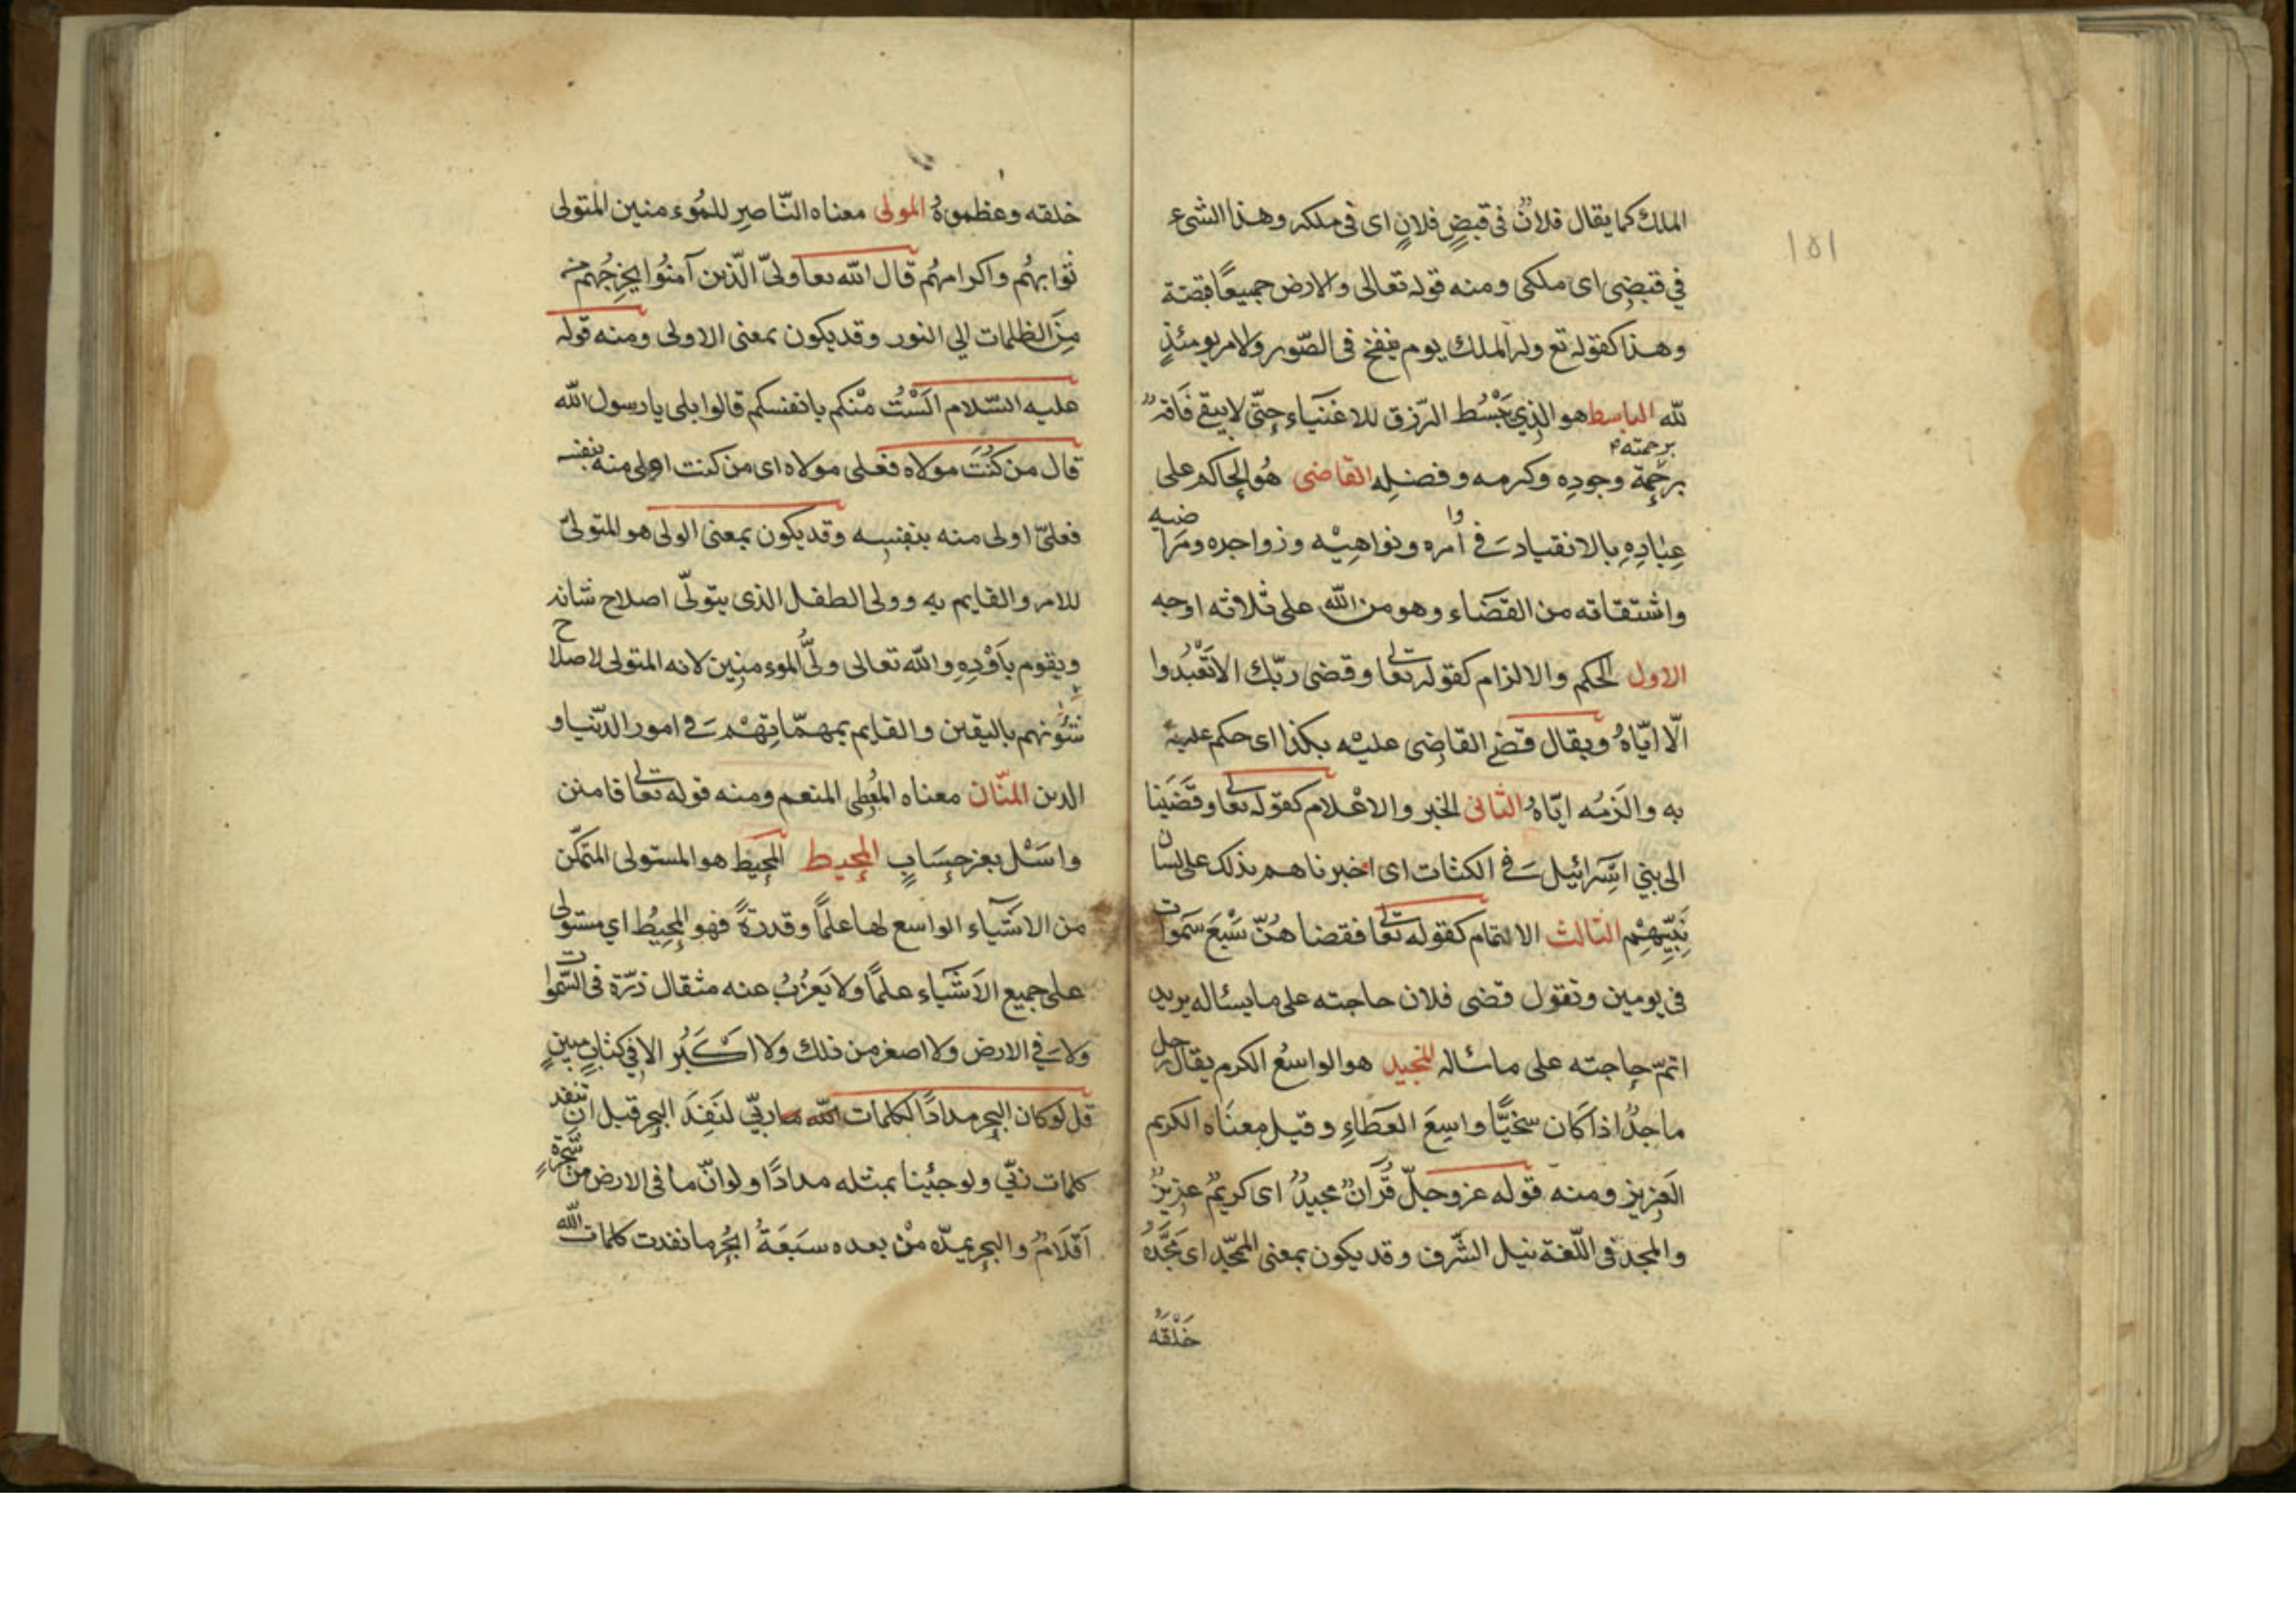 ١٥١
الملك كما يقال فلانٌ فى قبضٍ فلانٍ اى فى ملكه وهذا الشىء
في قبضِى اى ملكى ومنه قوله تعالى والارض جميعًا قبضته
وهذا كقوله تع وله الملك يوم ينفخ فى الصّور والامر يومئذٍ
لله الباسط هو الذِي يَبْسُط الرّزق للاغنياء حتّى لا يبقى فَاقةٌ
برحمته
برحمة وجودِه وكرمه وفضلِه القاضى هُو الحاكم على
عِبَادِهِ بالانقياد فى اوامره ونواهِيْه وزواجره ومَراضيه
واشتقاقه من القضَاء وهو من الله على ثلاثه اوجه
الاول الحكم والالزام كقوله تعالى وقضى ربّك الا تَعْبُدوا
الّا ايّاهُ ويقال قضى القاضِى عليْه بكذا اى حكم عليهِ
به والزمُه ايّاهُ الثانى الخبر والاعْلام كقوله تعالى وقَضَينا
الى بني اسَْرائيل فى الكتاب اى اخبرناهم بذلك على لسان
نَبِيِّهِمْ الثالث الاتمام كقوله تعالى فقضاهُنّ سَبْعَ سَموات
فى يومين وتقول قضى فلان حاجته على ما يسئاله يريد
اتمّ حاجته على ما سئاله المجيد هو الواسعُ الكرم يقال رجل
ماجدٌ اذا كان سخيًّا واسِعَ العَطاءِ وقيل معنَاه الكريم
العَزِيز ومنه قوله عز وجلّ قُرآنٌ مجيدٌ اى كريمٌ عزيزٌ
والمجد فى اللّغة نيل الشّرف وقد يكون بمعنى الممجّد اى مَجَّدَهُ
خَلْقَهُ
خلقه وعظموهُ المولى معناه النّاصِر للمُوءمنين المتولى
ثوابهُم واكرامهُم قال الله تعا ولىّ الّذين آمنُوا يخرِجُهم
مِنَ الظلمات الى النور وقد يكون بمعنى الاولى ومنه قوله
عليه السّلام السْتُ منْكم بانفسكم قالوا بلى يا رسول الله
قال من كنْتَ مولاه فعلى مولاه اى من كنت اولى منه بنفسه
فعلىّ اولى منه بنفسِه وقد يكون بمعنى الولى هو المتولىّ
للامر والقايم به وولى الطفل الذى يتولّى اصلاح شانه
ويقوم باَوْدِهِ والله تعالى ولىُّ الموءمنِين لانه المتولى لاصلاح
شئونهم باليقين والقايم بمهمّاتِهْم فى امور الدّنيا و
الدين المنّان معناه المُعْطِى المنعم ومنه قوله تعالى فامنن
وامْسِك بغير حِسَابٍ المحيط المحِيط هو المستولى المتمكّن
من الاشَياء الواسع لها علمًا وقدرةً فهو المحِيْطُ اي مستولى
على جميع الاشَياء علمًا ولا يَعْزُبُ عنه مثقال ذرّة فى السّموات
ولا فى الارض ولا اصغر من ذلك ولا اكْبَر الا فِي كتابٍ مبينٍ
قل لو كان البحر مدادًا لكلمات الله ربّي لنَفِدَ البحر قبل ان تنفد
كلمات ربّي ولو جئينا بمثله مدادًا ولو انّ ما فى الارض من شَجَرةٍ
اَقْلَامٌ والبحر يمدّه منْ بعده سَبعَةُ ابْحُر ما نفدت كلمات الله